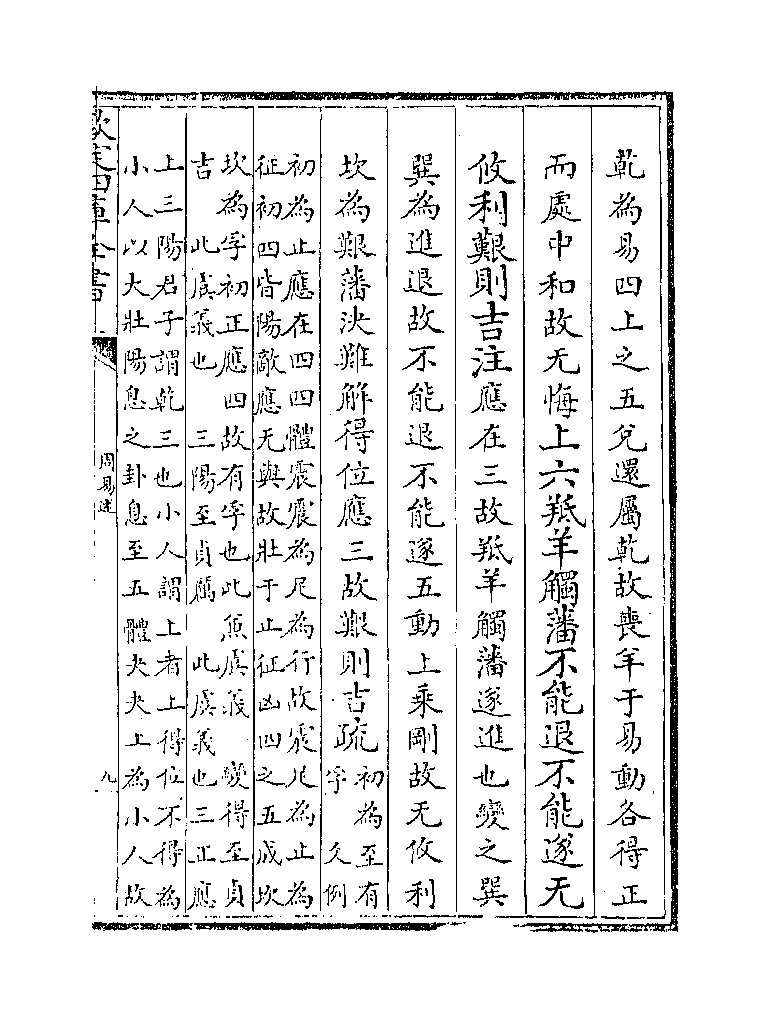 乾為易四上之五兌還屬乾故喪羊于易動各得正
而處中和故无悔上六羝羊觸藩不能退不能遂无
攸利艱則吉注應在三故羝羊觸藩遂進也變之巽
巽為進退故不能退不能遂五動上乘剛故无攸利
坎為艱藩決難解得位應三故艱則吉疏
初為至有
孚 爻例
初為止應在四四體震震為足為行故震足為止為
征初四皆陽敵應无與故壯于止征凶四之五成坎
坎為孚初正應四故有孚也此兼虞義 變得至貞
吉 此虞義也 三陽至貞厲 此虞義也三正應
上三陽君子謂乾三也小人謂上者上得位不得為
小人以大壯陽息之卦息至五體夬夬上為小人故
欽定四庫全書
周易述
九